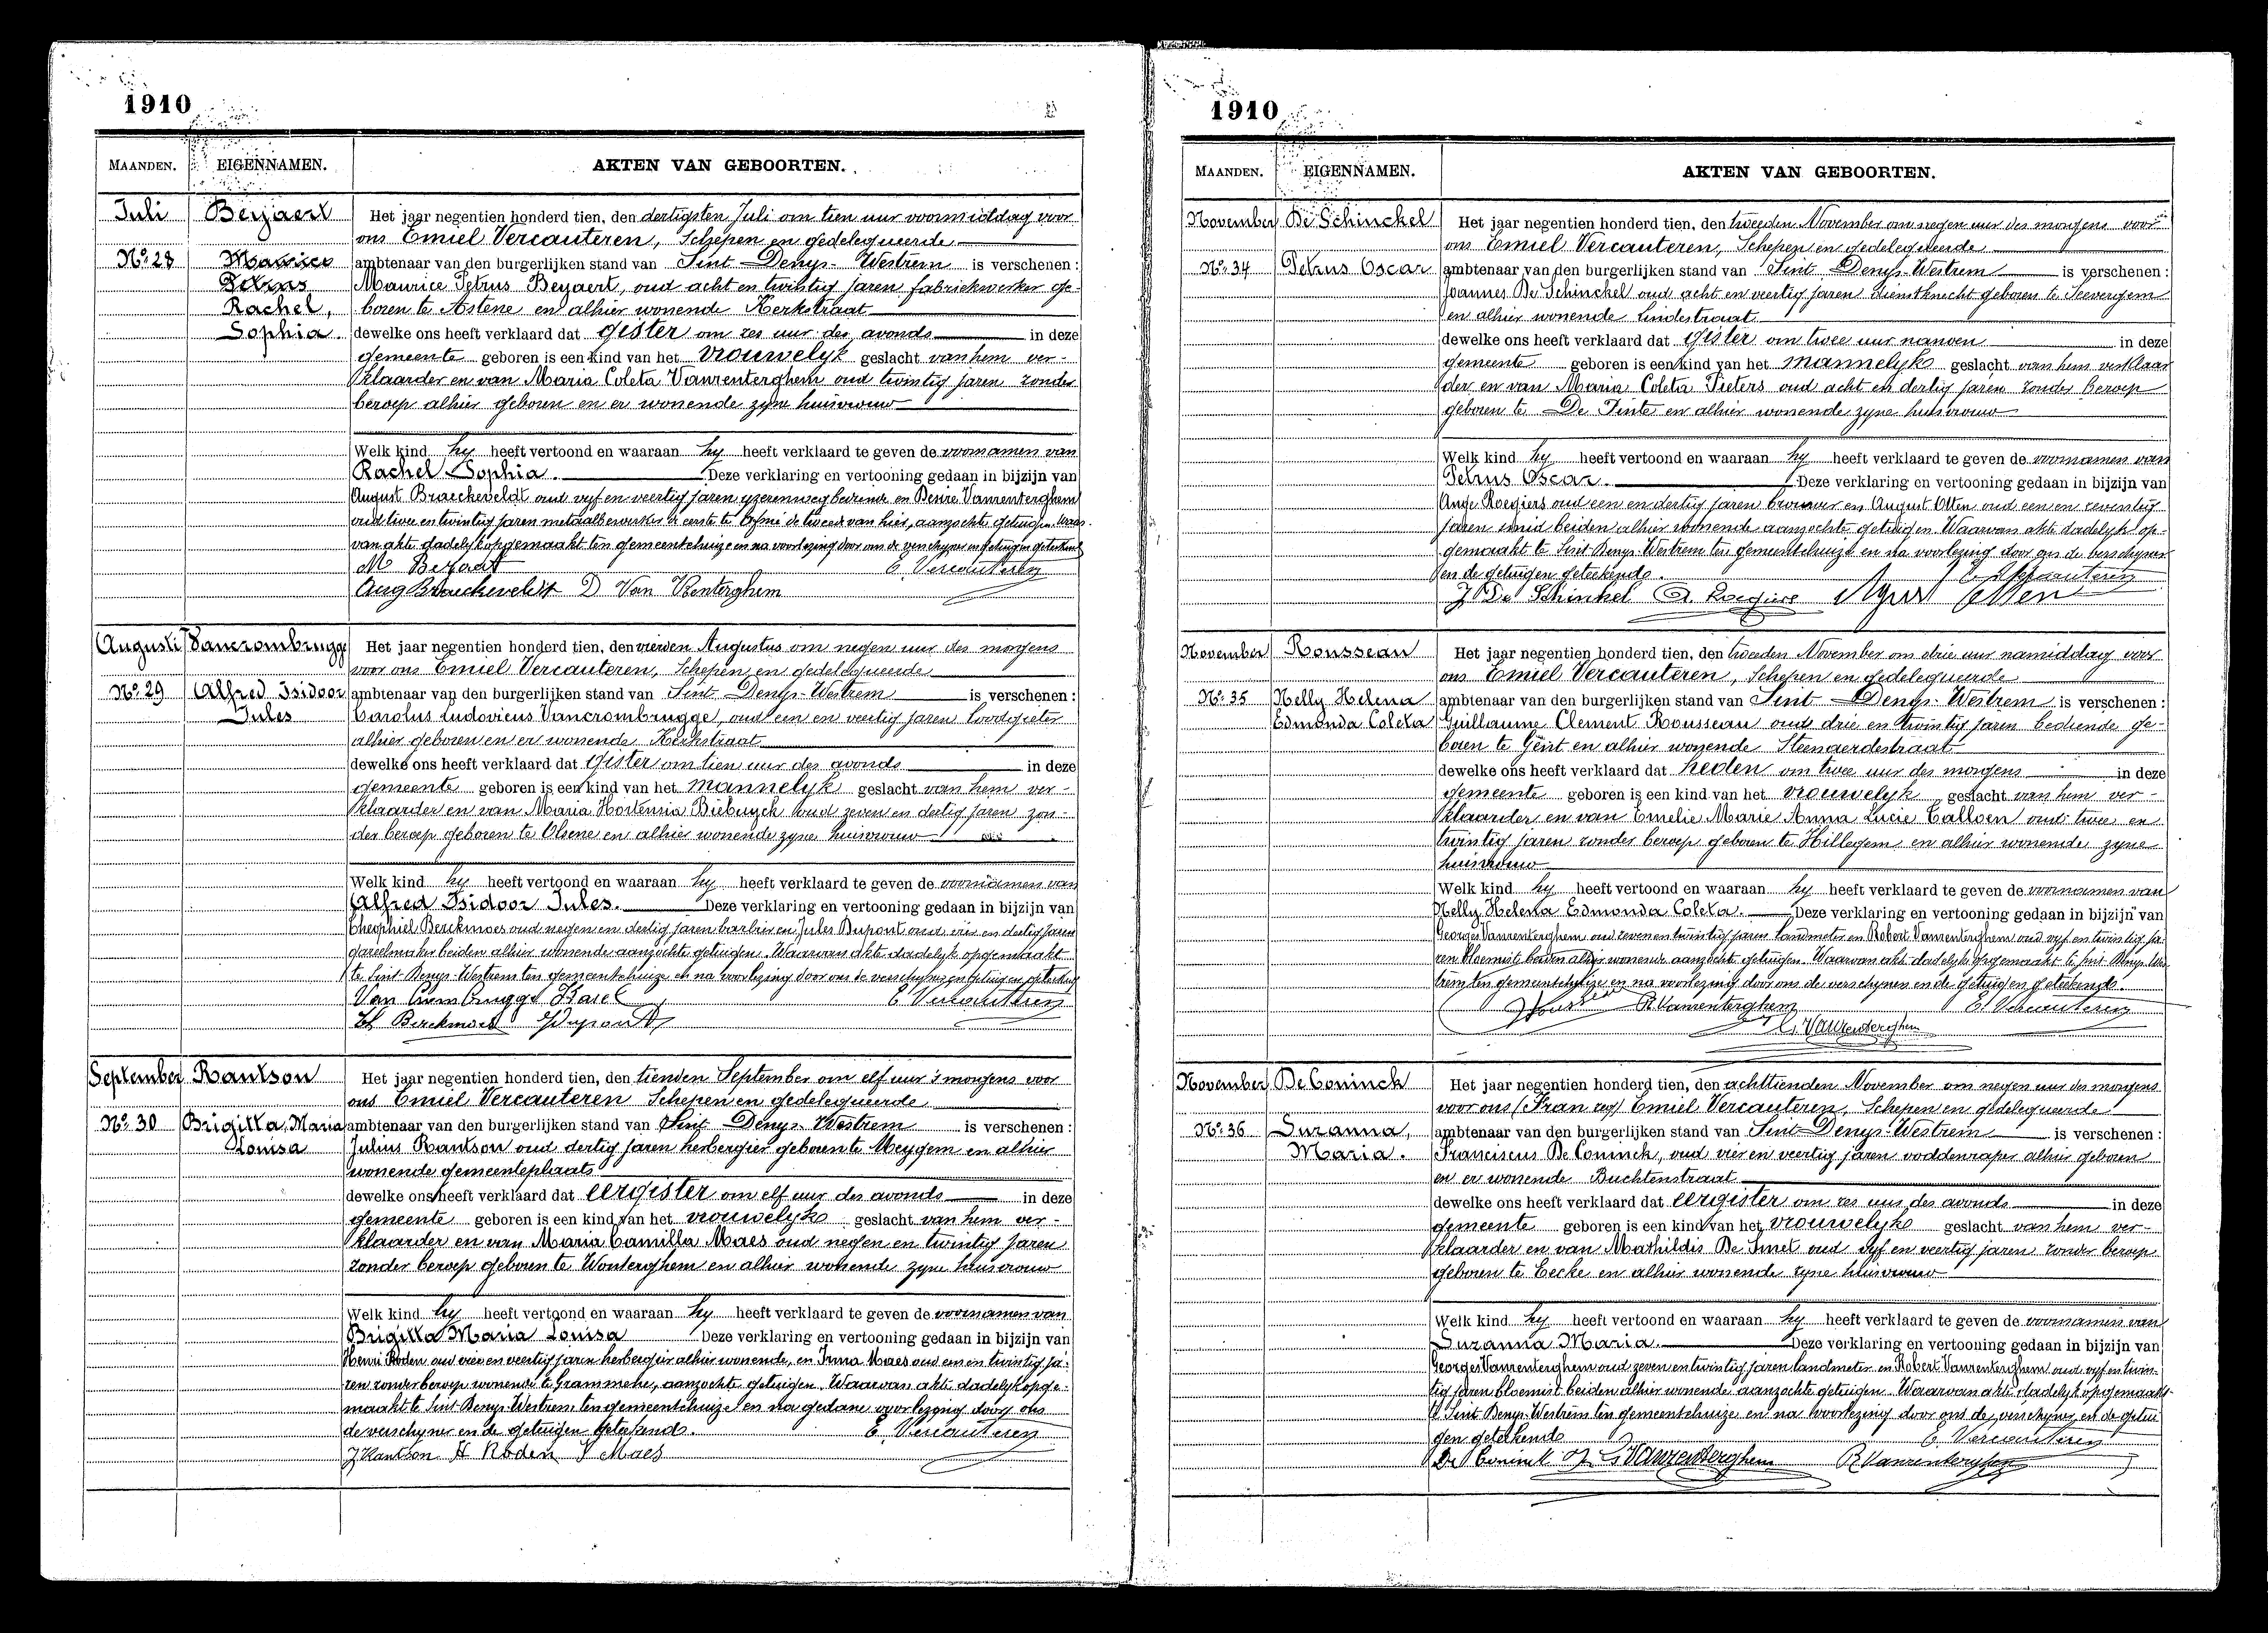 1910
MAANDEN. EIGENNAMEN. AKTEN VAN GEBOORTEN.
Juli Beyaert Het jaar negentien honderd tien, den dertigsten Juli om tien uur voormiddag voor
ons Emiel Vercauteren, Schepen en gedelegueerde
No. 28 Maurice ambtenaar van den burgerlijken stand van Sint Denys-Westrem is verschenen:
Petrus Maurice Petrus Beyaert, oud acht en twintig jaren fabriekwerker ge-
Rachel, boren te Astene en alhier wonende Kerkstraat
Sophia. dewelke ons heeft verklaard dat gister om zes uur des avonds in deze
gemeente geboren is een kind van het vrouwelyk geslacht van hem ver-
klaarder en van Maria Coleta Vanrenterghem oud twintig jaren zonder
beroep alhier geboren en er wonende zyne huisvrouw
Welk kind hy heeft vertoond en waaraan hy heeft verklaard te geven de voornamen van
Rachel Sophia. Deze verklaring en vertooning gedaan in bijzijn van
August Braeckeveldt oud vyf en veertig jaren yzerenweg bediende en Desire Vanrenterghem
oud twee en twintig jaren metaalbewerker de eerste te de tweede van hier, aanzochte getuigen. Waar-
van akte dadelyk opgemaakt ten gemeentehuize en na voorlezing door ons de verschyner en getuigen geteekend
M Beyaert E. Vercauteren
Aug Braeckeveldt D Van Renterghem
Augusti Vancrombrugge Het jaar negentien honderd tien, den vierden Augustus om negen uur des morgens
voor ons Emiel Vercauteren, Schepen en gedelegueerde
No. 29 Alfred Isidoor ambtenaar van den burgerlijken stand van Sint Denys-Westrem is verschenen:
Jules Carolus Ludovicus Vancrombrugge, oud een en veertig jaren loodgieter
alhier geboren en er wonende Kerkstraat
dewelke ons heeft verklaard dat gister om tien uur des avonds in deze
gemeente geboren is een kind van het mannelyk geslacht van hem ver-
klaarder en van Maria Hortensia Biebuyck oud zeven en dertig jaren zon-
der beroep geboren te Olsene en alhier wonende zyne huisvrouw
Welk kind hy heeft vertoond en waaraan hy heeft verklaard te geven de voornamen van
Alfred Isidoor Jules. Deze verklaring en vertooning gedaan in bijzijn van
Theophiel Berckmoes oud negen en dertig jaren barbier en Jules Dupont oud vier en dertig jaren
gareelmaker beiden alhier wonende aanzochte getuigen. Waarvan akte dadelyk opgemaakt
te Sint Denys-Westrem ten gemeentehuize en na voorlezing door ons de verschyner en getuigen geteekend
Van Crombrugge Karel E. Vercauteren
Th Berckmoes J Dupont
September Rantson Het jaar negentien honderd tien, den tienden September om elf uur 's morgens voor
ons Emiel Vercauteren Schepen en gedelegueerde
No. 30 Brigitta, Maria ambtenaar van den burgerlijken stand van Sint Denys-Westrem is verschenen:
Louisa Julius Rantson oud dertig jaren herbergier geboren te Meygem en alhier
wonende gemeenteplaats
dewelke ons heeft verklaard dat eergister om elf uur des avonds in deze
gemeente geboren is een kind van het vrouwelyk geslacht van hem ver-
klaarder en van Maria Camilla Maes oud negen en twintig jaren
zonder beroep geboren te Wonterghem en alhier wonende zyne huisvrouw
Welk kind hy heeft vertoond en waaraan hy heeft verklaard te geven de voornamen van
Brigitta Maria Louisa Deze verklaring en vertooning gedaan in bijzijn van
Henri Roden oud vier en veertig jaren herbergier alhier wonende, en Irma Maes oud een en twintig ja-
ren zonder beroep wonende te Grammene, aanzochte getuigen. Waarvan akte dadelyk opge-
maakt te Sint Denys-Westrem ten gemeentehuize en na gedane voorlezing door ons
de verschyner en de getuigen geteekend. E. Vercauteren
J Rantson H Roden I Maes
1910
MAANDEN. EIGENNAMEN. AKTEN VAN GEBOORTEN.
November De Schinckel Het jaar negentien honderd tien, den tweeden November om negen uur des morgens voor
ons Emiel Vercauteren, Schepen en gedelegueerde
No. 34 Petrus Oscar ambtenaar van den burgerlijken stand van Sint Denys-Westrem is verschenen:
Joannes De Schinckel oud acht en veertig jaren dienstknecht geboren te Seevergem
en alhier wonende Lindestraat
dewelke ons heeft verklaard dat gister om twee uur nanoen in deze
gemeente geboren is een kind van het mannelyk geslacht van hem verklaar
der en van Maria Coleta Pieters oud acht en dertig jaren zonder beroep
geboren te De Pinte en alhier wonende zyne huisvrouw
Welk kind hy heeft vertoond en waaraan hy heeft verklaard te geven de voornamen van
Petrus Oscar. Deze verklaring en vertooning gedaan in bijzijn van
Ange Roegiers oud een en dertig jaren brouwer en August Otten oud een en zeventig
jaren smid beiden alhier wonende aanzochte getuigen. Waarvan akte dadelyk op-
gemaakt te Sint Denys-Westrem ten gemeentehuize en na voorlezing door ons de verschyner
en de getuigen geteekend. E. Vercauteren
J De Schinkel A. Roegiers Otten
November Rousseau Het jaar negentien honderd tien, den tweeden November om drie uur namiddag voor
ons Emiel Vercauteren, Schepen en gedelegueerde
No. 35 Nelly Helena ambtenaar van den burgerlijken stand van Sint Denys-Westrem is verschenen:
Edmonda Coleta Guillaume Clement Rousseau oud drie en twintig jaren bediende ge-
boren te Gent en alhier wonende Steenaerdestraat
dewelke ons heeft verklaard dat heden om twee uur des morgens in deze
gemeente geboren is een kind van het vrouwelyk geslacht van hem ver-
klaarder en van Emelie Marie Anna Lucie Calloen oud twee en
twintig jaren zonder beroep geboren te Hillegem en alhier wonende zyne
huisvrouw
Welk kind hy heeft vertoond en waaraan hy heeft verklaard te geven de voornamen van
Nelly Helena Edmonda Coleta. Deze verklaring en vertooning gedaan in bijzijn van
Georges Vanrenterghem oud zeven en twintig jaren landmeter en Robert Vanrenterghem oud vyf en twintig ja-
ren bloemist beiden alhier wonende aanzochte getuigen. Waarvan akte dadelyk opgemaakt te Sint Denys-Wes-
trem ten gemeentehuize en na voorlezing door ons de verschyner en de getuigen geteekend.
Rousseau R. Vanrenterghem E. Vercauteren
G. Vanrenterghem
November De Coninck Het jaar negentien honderd tien, den achttienden November om negen uur des morgens
voor ons Emiel Vercauteren, Schepen en gedelegueerde
No. 36 Suzanna, ambtenaar van den burgerlijken stand van Sint-Denys-Westrem is verschenen:
Maria. Franciscus De Coninck, oud vier en veertig jaren voddenraper alhier geboren
en er wonende Buchtenstraat
dewelke ons heeft verklaard dat eergister om zes uur des avonds in deze
gemeente geboren is een kind van het vrouwelyk geslacht van hem ver-
klaarder en van Mathildis De Smet oud vyf en veertig jaren zonder beroep
geboren te Eecke en alhier wonende zyne huisvrouw
Welk kind hy heeft vertoond en waaraan hy heeft verklaard te geven de voornamen van
Suzanna Maria. Deze verklaring en vertooning gedaan in bijzijn van
Georges Vanrenterghem oud zeven en twintig jaren landmeter en Robert Vanrenterghem oud vyf en twin-
tig jaren bloemist beiden alhier wonende aanzochte getuigen. Waarvan akte dadelyk opgemaakt
te Sint Denys-Westrem ten gemeentehuize en na voorlezing door ons de verschyner en de getui
gen geteekend E. Vercauteren
De Coninck G. Vanrenterghem R. Vanrenterghem